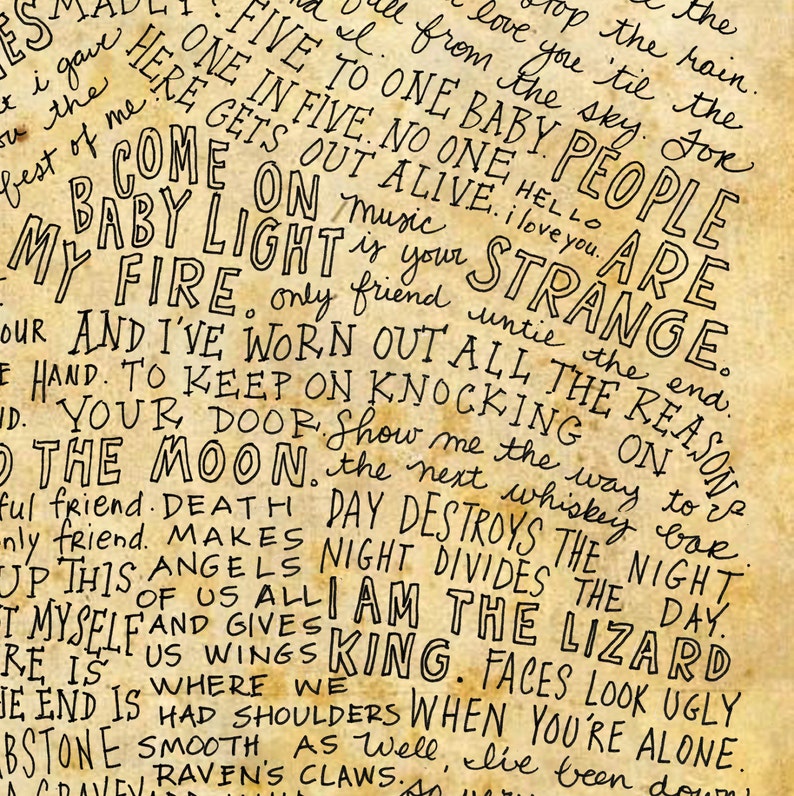 the
stop the rain.
love you 'til the
fall from the sky. For
MADLY?
i gave
the
best of me.
FIVE TO ONE BABY.
ONE IN FIVE. NO ONE
HERE GETS OUT ALIVE.
HELLO
i love you.
PEOPLE
ARE
STRANGE.
COME ON
BABY LIGHT
MY FIRE.
music
is your
only friend untie the end.
AND I'VE WORN OUT ALL THE REASONS
TO KEEP ON KNOCKING ON
YOUR DOOR.
HAND.
THE MOON.
Show me the way to
the next whiskey bar.
friend.
only friend.
UP THIS.
MYSELF
IS
THE END IS
DEATH
MAKES
ANGELS
OF US ALL
AND GIVES
US WINGS
WHERE WE
HAD SHOULDERS
SMOOTH AS
RAVEN'S CLAWS.
DAY DESTROYS THE NIGHT
NIGHT DIVIDES THE DAY.
I AM THE LIZARD
KING.
FACES LOOK UGLY
WHEN YOU'RE ALONE.
Well, I've been down
so